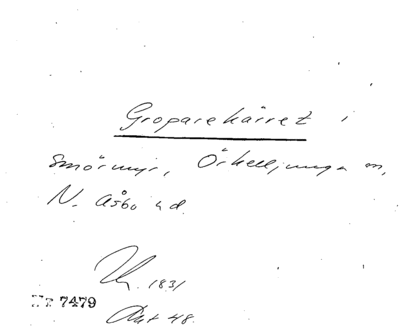 Groparekärret i
Smörmyr, Örkelljunga sn,
N. Åsbo hd.
1831
Nr 7479
Akt 48.